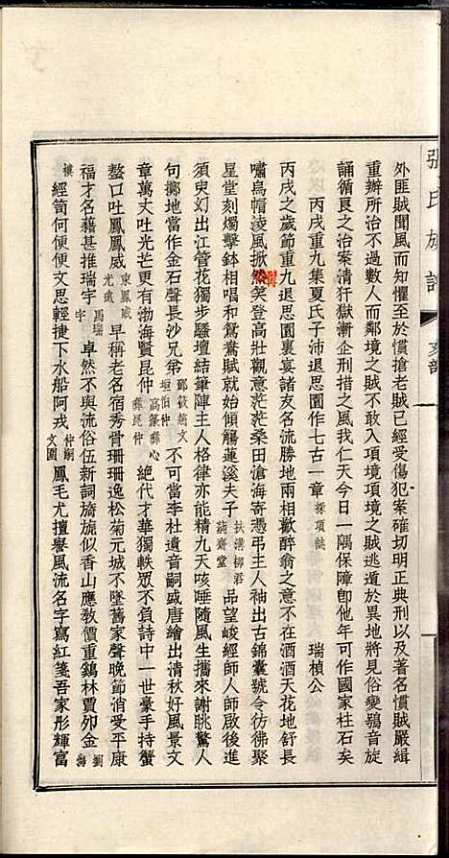 張氏族譜
文部
外匪賊聞風而知懼至於慣搶老賊已經受傷犯案確切明正典刑以及著名慣賊嚴緝
重辦所治不過數人而鄰境之賊不敢入項境項境之賊逃遁於異地將見俗變鴞音旋
誦循良之治案清犴獄漸企刑措之風我仁天今日一隅保障卽他年可作國家柱石矣
丙戌重九集夏氏子沛退思園作七古一章 採項城 瑞楨公
丙戌之歲節重九退思園裏宴諸友名流勝地兩相歡醉翁之意不在酒酒天花地舒長
嘯烏帽淩風掀然笑登高壯觀意茫茫桑田滄海寄憑弔主人袖出古錦囊號令彷彿聚
星堂刻燭擊鉢相唱和鴛鴦賦就始傾觴蓮溪夫子 扶溝柳君 蒓齋堂 品望峻經師人師啟後進
須臾幻出江管花獨步騷壇結筆陣主人格律亦能精九天咳唾隨風生攜來謝眺驚人
句擲地當作金石聲長沙兄弟 鄭筱菡文 垣伯仲 不可當李杜遺音嗣盛唐繪出清秋好風景文
章萬丈吐光芒更有渤海賢昆仲 高篆彝心 彝昆仲 絕代才華獨軼眾不負詩中一世豪手持蟹
螯口吐鳳鳳威 東鳳威 光遠 早稱老名宿秀骨珊珊逸松菊元城不墜舊家聲晚節消受平康
福才名藉甚推瑞宇 馬瑞 宇 卓然不與流俗伍新詞旖旎似香山應敎價重鷄林賈卯金 劉 海
樓 經笥何便便文思輕捷下水船阿戎 仲嗣 文園 鳳毛尤擅譽風流名字寫紅箋吾家彤輝富